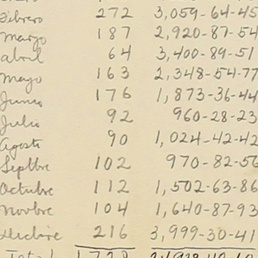 Febrero 272 3,059-64-45
Marzo 187 2,920-87-54
Abril 64 3,400-89-51
Mayo 163 2,348-54-77
Junio 176 1,873-36-44
Julio 92 960-28-23
Agosto 90 1,024-42-42
Septbre 102 970-82-56
Octubre 112 1,502-63-86
Novbre 104 1,640-87-93
Diciembre 216 3,999-30-41
Total